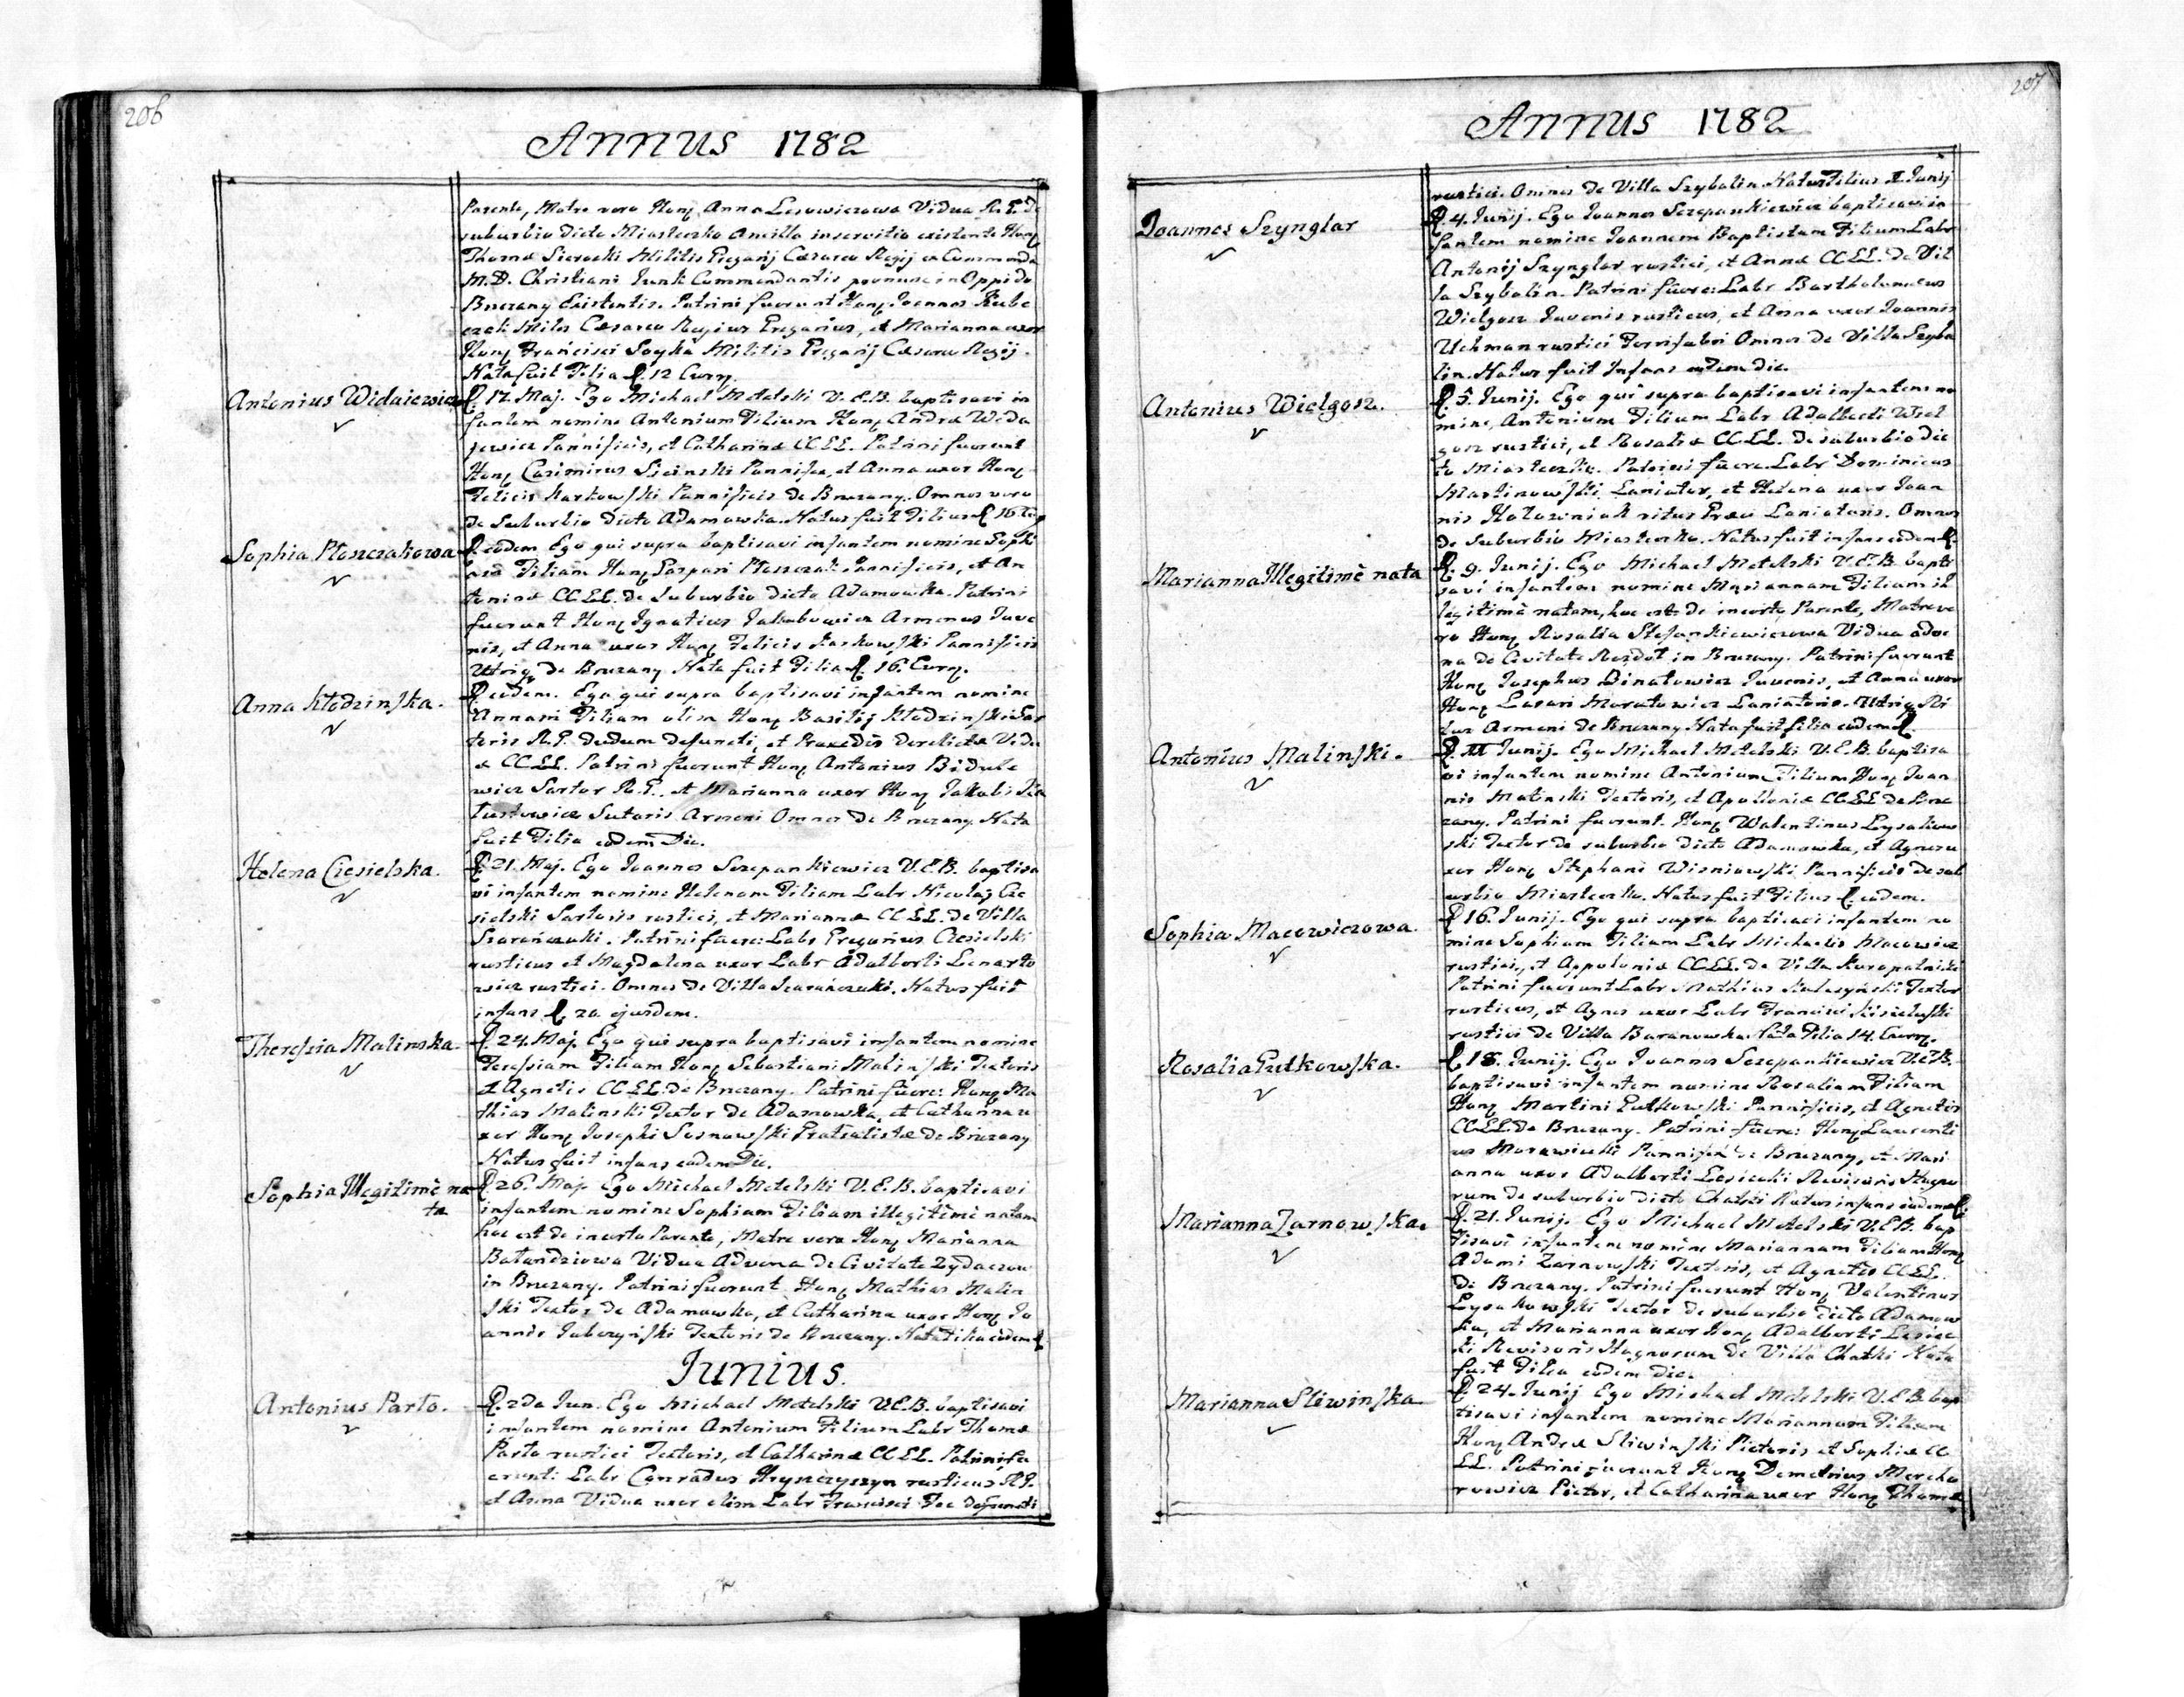 206
Annus 1782
Parente, Matre vero Hon. Anna Lesowiczowa Vidua R. G. de
suburbio dicto Miasteczko Ancilla in servitio existente Hon.
Thomæ Sierocki Militis Gregarij Cæsareo Regij ex Commenda
M.D. Christiani Junk Commendantis pronunc in Oppido
Brzezany Existentis. Patrini fuerunt Hon. Joannes
Miles Cæsareo Regius Gregarius, et Marianna uxor
Hon. Francisci Soyka Militis Gregarij Cæsareo Regij.
Nata fuit Filia d. 12 Curr.
Antonius Widaiewicz
d. 17. Maj. Ego Michael Metelski V.E.B. baptisavi in
fantem nomine Antonium Filium Hon. Andreæ Wida
jewicz Pannificis, et Catharinæ CC LL. Patrini fuerunt
Hon. Casimirus Sicinski Pannifex, et Anna uxor Hon.
Felicis Karkowski Pannificis de Brzezany. Omnes vero
de Suburbio dicto Adamowka. Natus fuit Filius d. 16
Sophia Ptoszczakowa
d. eodem Ego qui supra baptisavi infantem nomine Sophi
am Filiam Hon. Gaspari Ptaszczak Pannificis, et An
toninæ CC LL. de Suburbio dicto Adamowka. Patrini
fuerunt Hon. Ignatius Jakubowicz Armenus Juve
nis, et Anna uxor Hon. Felicis Karkowski Pannificis
Utriq. de Brzezany Nata fuit Filia d. 16. Curr.
Anna Kłodzinska.
d. eodem. Ego qui supra baptisavi infantem nomine
Annam Filiam olim Hon. Basilij Kłodzinski Sar
toris R.G. dudum defuncti, et Praxedis derelictæ Vidu
æ CC LL. Patrini fuerunt Hon. Antonius Bidule
wicz Sartor R.G., et Marianna uxor Hon. Jakobi
Sutoris Armeni Omnes de Brzezany Nata
fuit Filia eodem Die.
Helena Ciesielska.
d. 21. Maj. Ego Joannes Szczepankiewicz V.E.B. baptisa
vi infantem nomine Helenam Filiam Labr. Nicolaj Cie
sielski Sartoris rustici, et Mariannæ CC LL. de Villa
Szaranczuki. Patrini fuere: Labr. Gregorius Ciesielski
rusticus et Magdalena uxor Labr. Adalberti Lenarto
wicz rustici. Omnes de Villa Szaranczuki. Natus fuit
infans d. 20 ejusdem.
Theressia Malinska.
d. 24. Maj. Ego qui supra baptisavi infantem nomine
Teressiam Filiam Hon. Sebastiani Malinski Textoris
et Agnetis CC LL. de Brzezany. Patrini fuere: Hon. Ma
thias Malinski Textor de Adamowka, et Catharina u
xor Hon. Josephi Sosnowski de Brzezany
Natus fuit infans eodem Die.
Sophia Illegitimè na
ta
d. 26. Maj. Ego Michael Metelski V.E.B. baptisavi
infantem nomine Sophiam Filiam illegitimè natam
hoc est de incerto Parente, Matre vero Hon. Marianna
Batandziowa Vidua Advena de Civitate Zydaczow
in Brzezany. Patrini fuerunt Hon. Mathias Malin
ski Textor de Adamowka, et Catharina uxor Hon. Jo
annis Jaberzynski Textoris de Brzezany. Nata Filia eodem d.
Junius.
Antonius Parto.
d. 2da Jun. Ego Michael Metelski V.E.B. baptisavi
infantem nomine Antonium Filium Labr. Thomæ
Parto rustici Textoris, et Catharinæ CC LL. Patrini fu
erunt: Labr. Conradus Hryszczyszyn rusticus R.G.
et Anna Vidua uxor olim Labr. Francisci defuncti
207
Annus 1782
rustici. Omnes de Villa Szybalin. Natus Filius Junij
Joannes Szynglar
d. 4. Junij. Ego Joannes Szczepankiewicz baptisavi in
fantem nomine Joannem Baptistam Filium Labr.
Antonij Szynglar rustici, et Annæ CC LL. de Vil
la Szybalin. Patrini fuere: Labr. Bartholomæus
Wielgosz Juvenis rusticus, et Anna uxor Joannis
Uchman rustici Ferrifabri Omnes de Villa Szyba
lin. Natus fuit Infans eodem die.
Antonius Wielgosz.
d. 5. Junij. Ego qui supra baptisavi infantem no
mine, Antonium Filium Labr. Adalberti Wiel
gosz rustici, et Rosaliæ CC LL. de suburbio dic
to Miasteczko. Patrini fuere Labr. Dominicus
Martinowski Laniator, et Helena uxor Joan
nis Hołowniak ritus Græci Laniatoris. Omnes
de Suburbio Miasteczko. Natus fuit infans eodem d.
Marianna Illegitimè nata
d. 9. Junij. Ego Michael Metelski V.E.B. bapti
savi infantem nomine Mariannam Filiam il
legitimè natam, hoc est de incerto Parente, Matre ve
ro Hon. Rosalia Stefankiewiczowa Vidua adve
na de Civitate Rozdoł in Brzezany. Patrini fuerunt
Hon. Josephus Binatowicz Juvenis, et Anna uxor
Hon. Lazari Moratowicz Laniatoris. Utriq. Ri
tus Armeni de Brzezany Nata fuit filia eodem d.
Antonius Malinski.
d. Junij. Ego Michael Metelski V.E.B. baptisa
vi infantem nomine Antonium Filium Hon. Joan
nis Malinski Textoris, et Apolloniæ CC LL. de Brze
zany. Patrini fuerunt. Hon. Walentinus Lysakow
ski Textor de suburbio dicto Adamowka, et Agnes u
xor Hon. Stephani Wisniowski Pannificis de sub
urbio Miasteczko. Natus fuit Filius d. eodem.
Sophia Macowiczowa.
d. 16. Junij. Ego qui supra baptisavi infantem no
mine Sophiam Filiam Labr. Michaelis Macowicz
rustici, et Appoloniæ CC LL. de Villa Kuropatniki
Patrini fuerunt Labr. Mathias Textor
rusticus, et Agnes uxor Labr. Francisci Kisieluski
rustici de Villa Baranowka. Nata Filia 14. Curr.
Rosalia Gutkowska.
d. 18. Junij. Ego Joannes Szczepankiewicz V.E.B.
baptisavi infantem nomine Rosaliam Filiam
Hon. Martini Gutkowski Pannificis, et Agnetis
CC LL. de Brzezany. Patrini fuere: Hon. Laurenti
us Morawiecki Pannifex de Brzezany, et Mari
anna uxor Adalberti Lesiecki Revisoris Stagno
rum de suburbio dicto Chatki Natus infans eodem d.
Marianna Zarnowska.
d. 21. Junij. Ego Michael Metelski V.E.B. bap
tisavi infantem nomine Mariannam Filiam Hon.
Adami Zarnowski Textoris, et Agnetis CC LL.
de Brzezany. Patrini fuerunt Hon. Valentinus
Lysakowski Textor de suburbio dicto Adamow
ka, et Marianna uxor Hon. Adalberti Lesiec
ki Revisoris Stagnorum de Villa Chatki Nata
fuit Filia eodem die.
Marianna Sliwinska
d. 24. Junij Ego Michael Metelski V.E.B. bap
tisavi infantem nomine Mariannam Filiam
Hon. Andreæ Sliwinski Pictoris et Sophiæ CC
LL. Patrini fuerunt Hon. Demetrius Mercho
rowicz Pictor, et Catharina uxor Hon. Thomæ